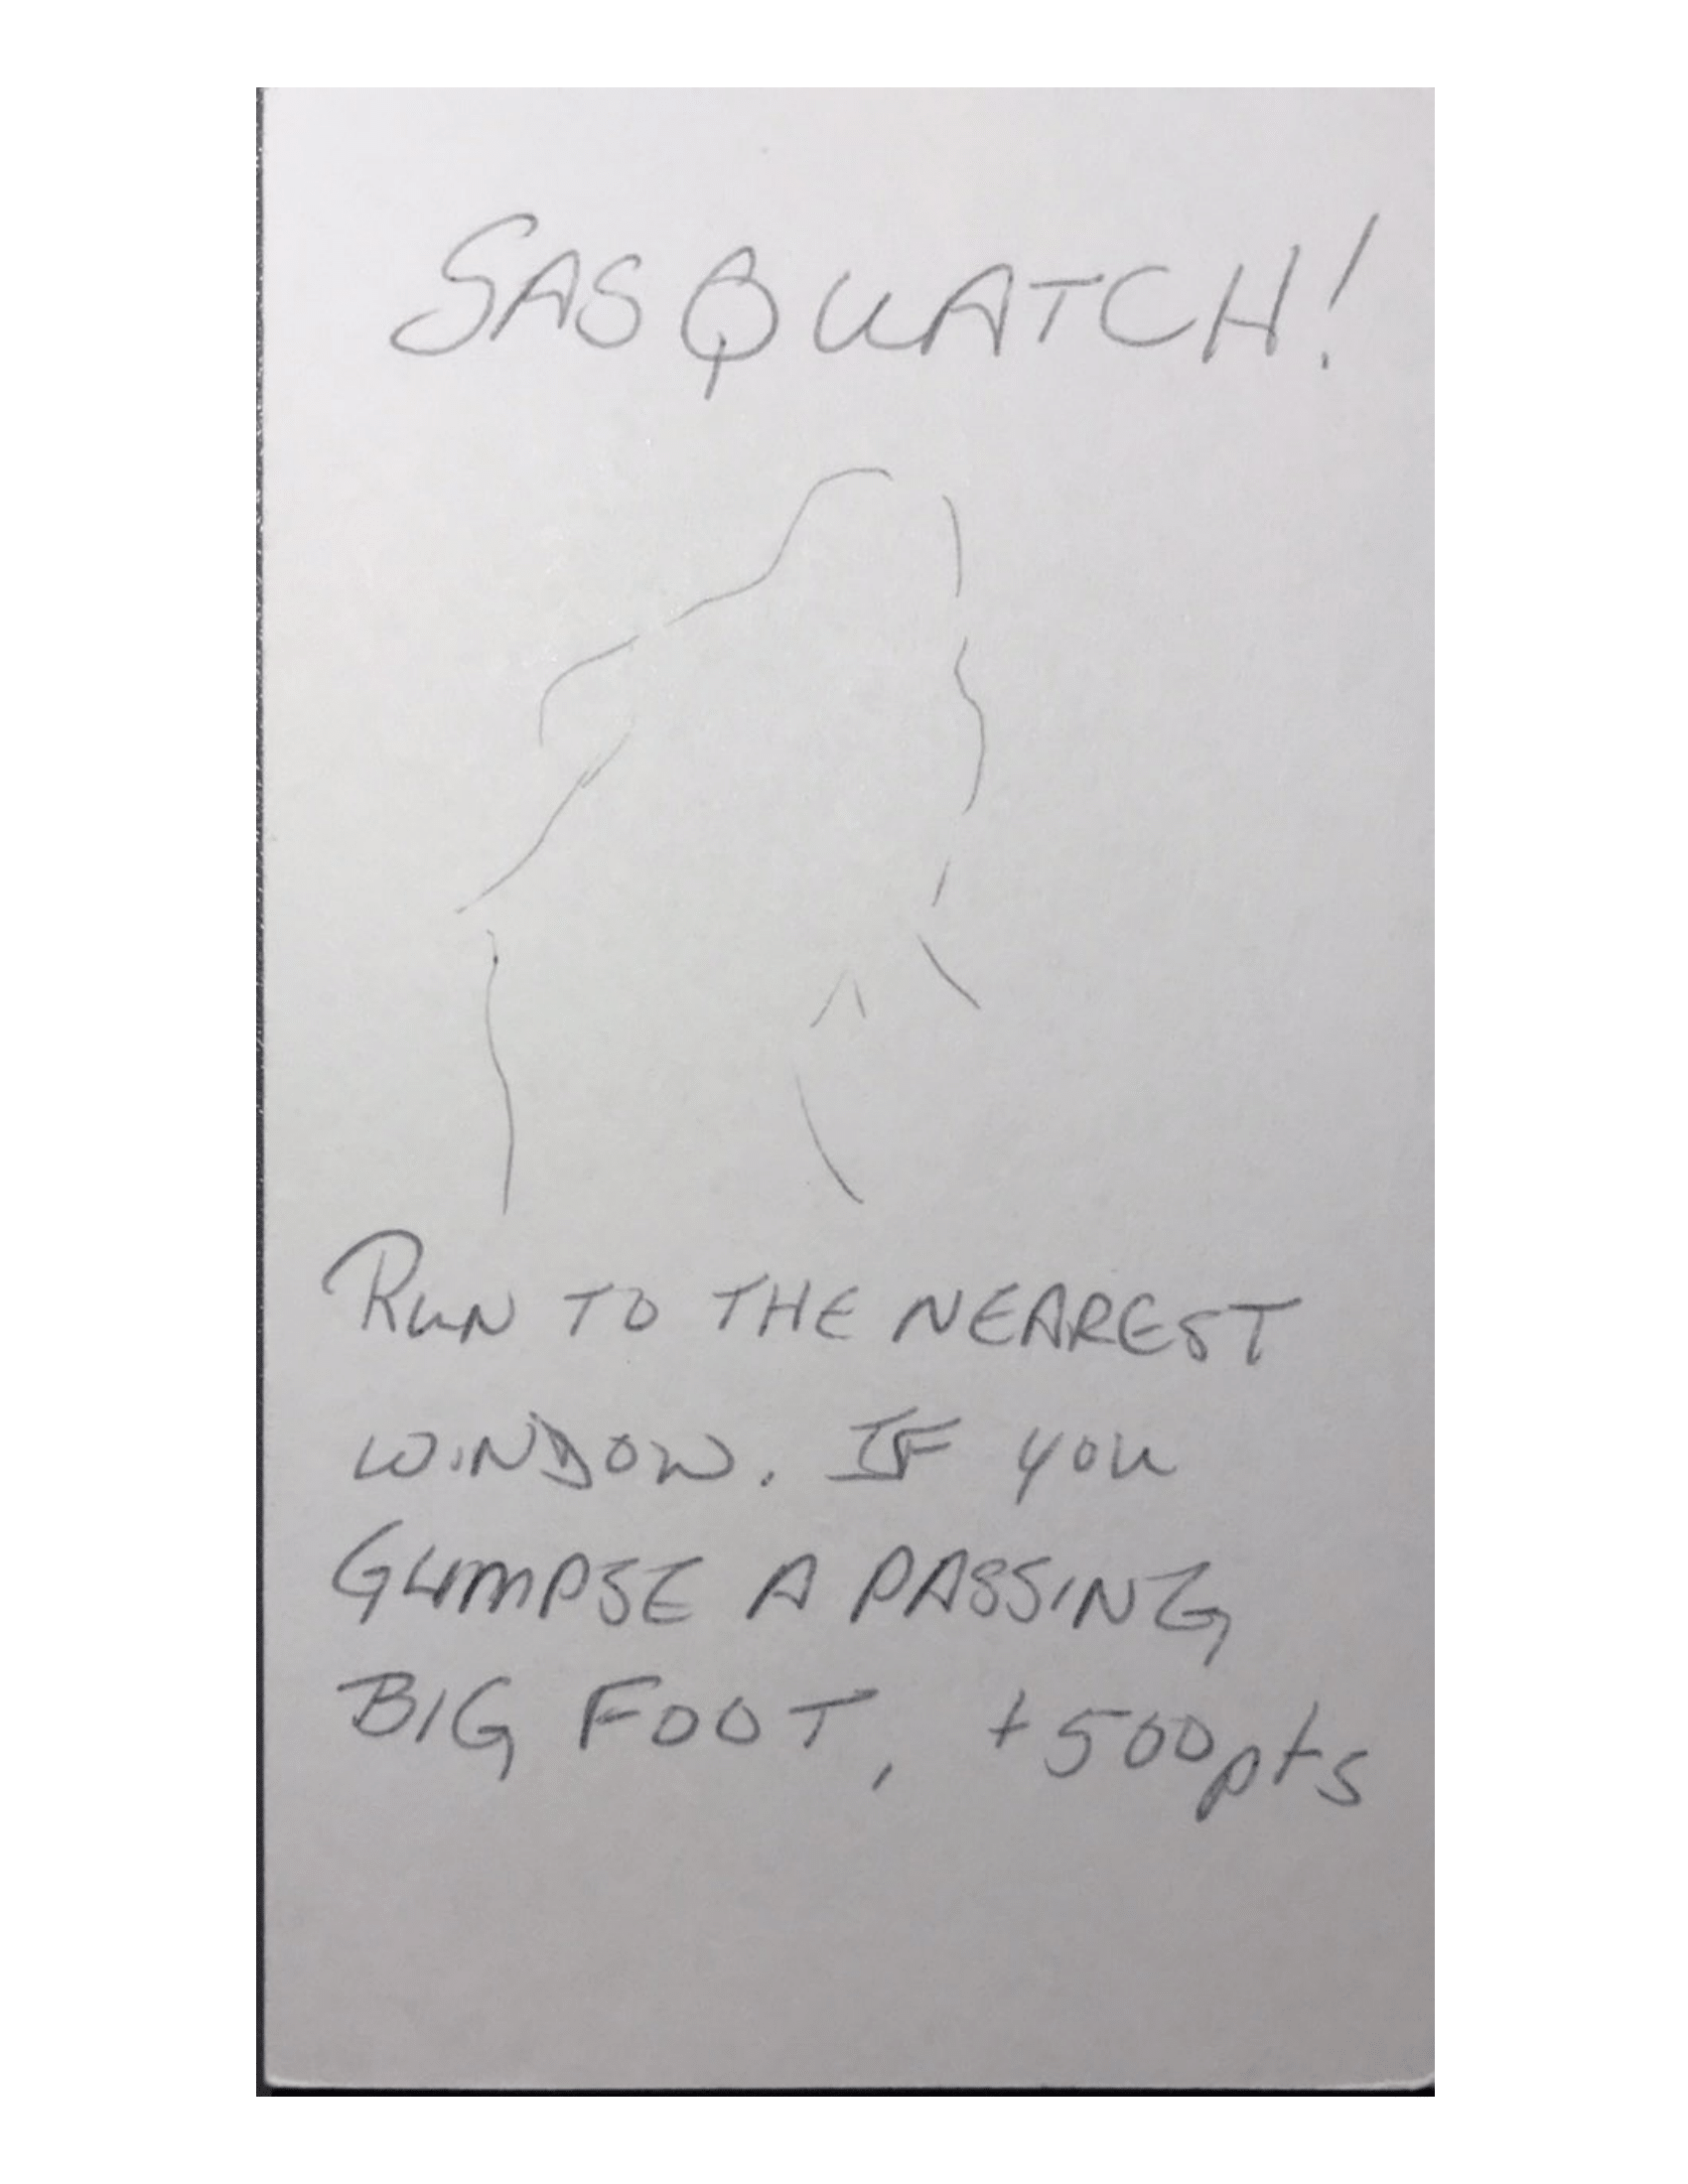 SASQUATCH!
RUN TO THE NEAREST
WINDOW. IF YOU
GLIMPSE A PASSING
BIG FOOT, +500pts